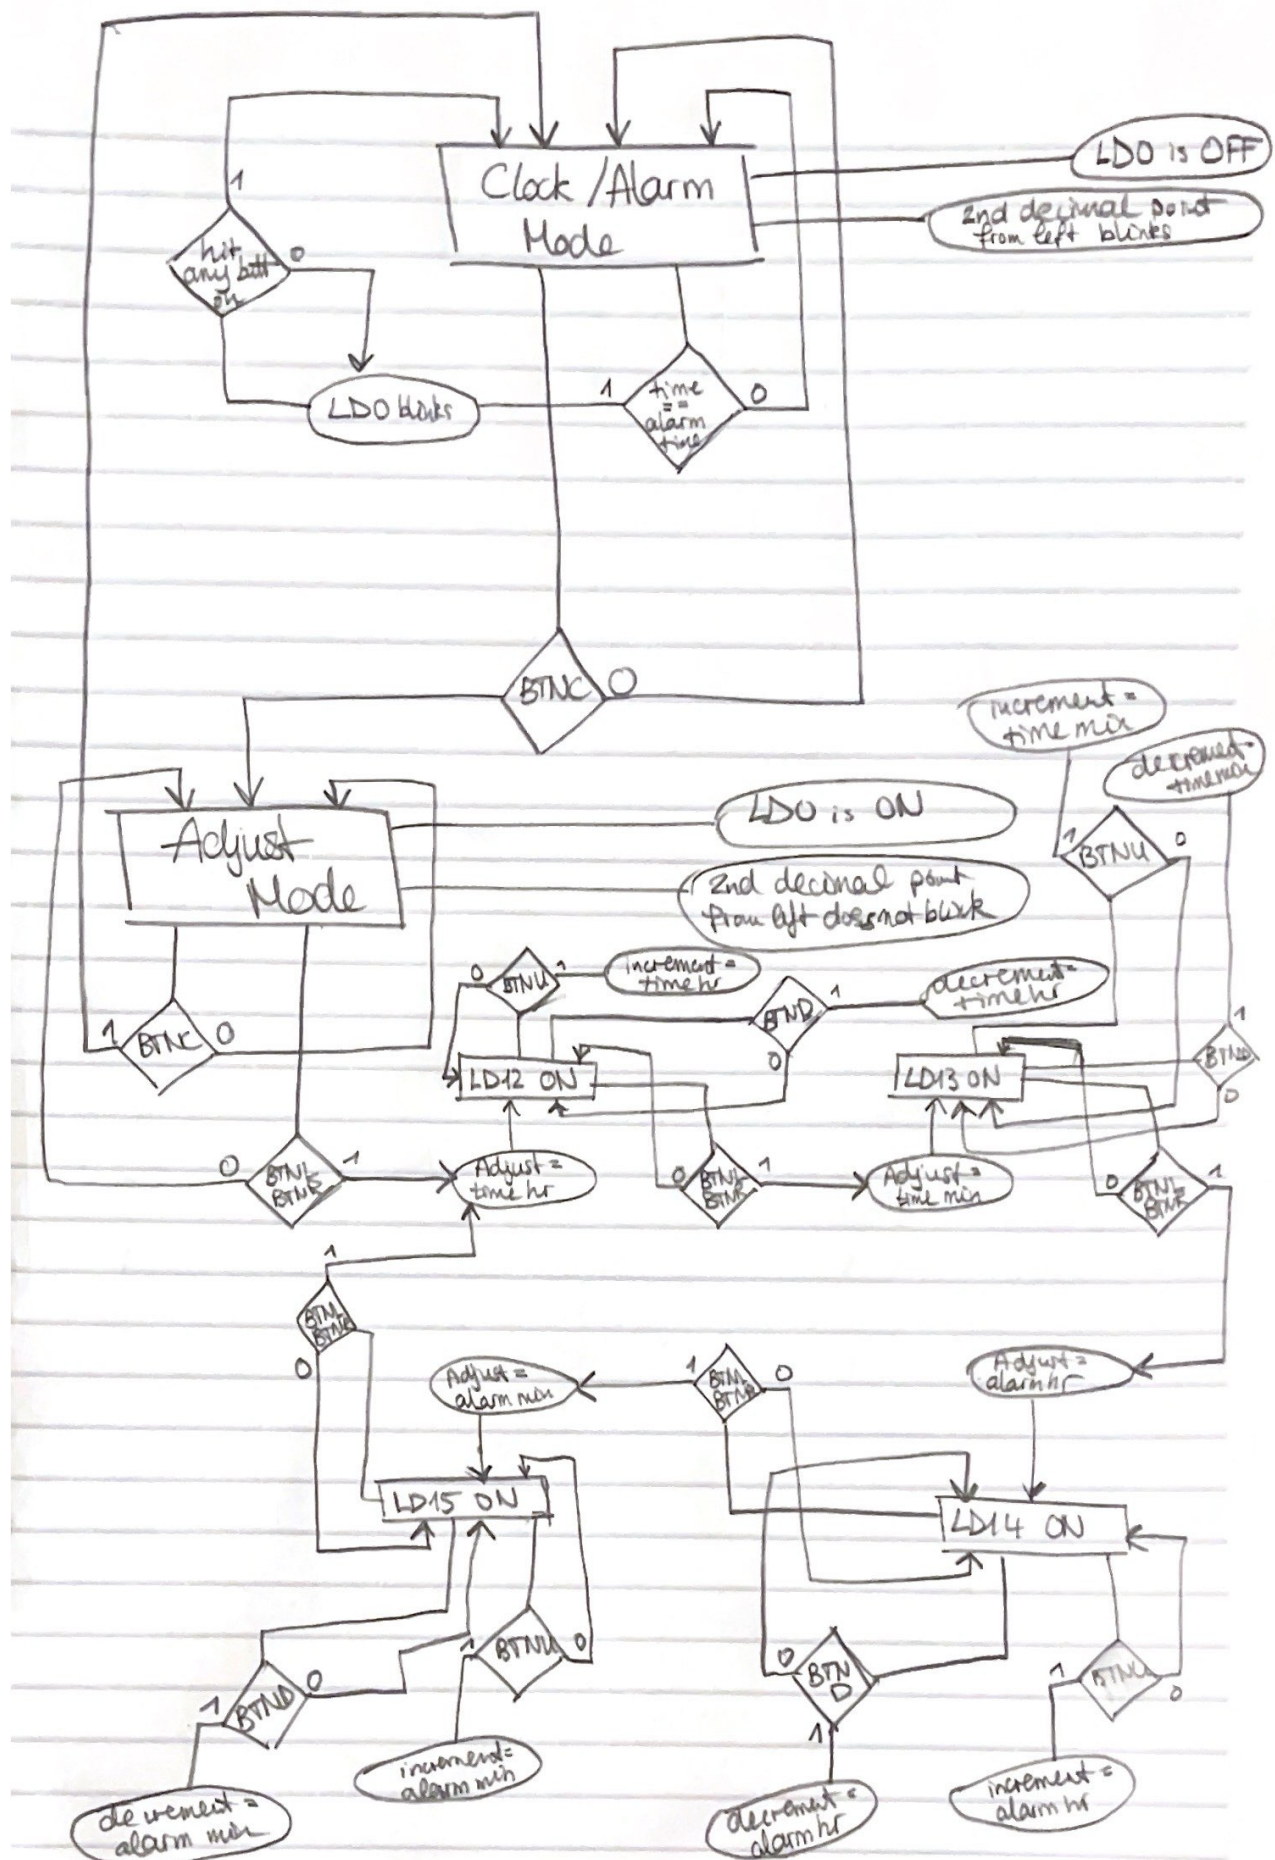 LD0 is OFF
1
Clock / Alarm
Mode
2nd decimal point
from left blinks
hit
any butt
on
0
LD0 blinks
1
time
==
alarm
time
0
BTNC
0
increment =
time min
decrement =
time min
LD0 is ON
1
BTNU
0
Adjust
Mode
2nd decimal point
from left does not blink
0
BTNU
1
increment =
time hr
BTND
1
decrement =
time hr
1
BTNC
0
0
1
BTND
0
LD12 ON
LD13 ON
0
BTNL
BTNR
1
Adjust =
time hr
0
BTNL
BTNR
1
Adjust =
time min
0
BTNL
BTNR
1
1
BTNL
BTNR
0
Adjust =
alarm min
1
BTNL
BTNR
0
Adjust =
alarm hr
LD15 ON
LD14 ON
1
BTNU
0
0
BTN
D
1
1
BTNU
0
1
BTND
0
increment =
alarm min
increment =
alarm hr
decrement =
alarm min
decrement =
alarm hr